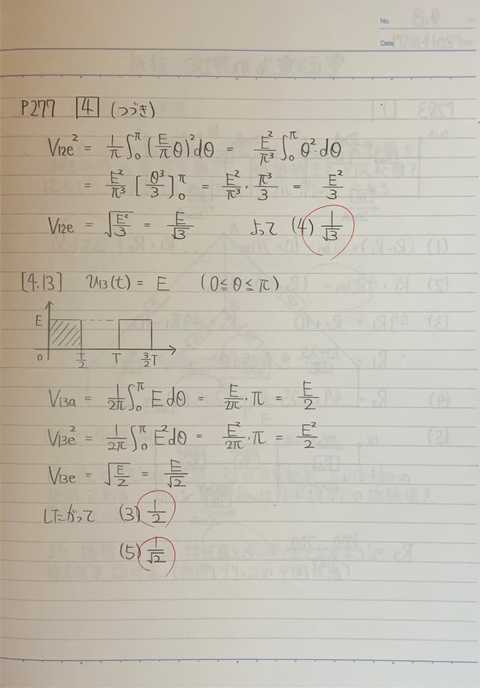 No. 9.8
Date
P277 [4] (つづき)
V12e² = 1/π ∫₀^π (E/π θ)² dθ = E²/π³ ∫₀^π θ² dθ
= E²/π³ [θ³/3]₀^π = E²/π³ · π³/3 = E²/3
V12e = √(E²/3) = E/√3 よって (4) 1/√3
[4.13] v13(t) = E (0≦θ≦π)
E
0 T/2 T 3/2T
V13a = 1/2π ∫₀^π E dθ = E/2π · π = E/2
V13e² = 1/2π ∫₀^π E² dθ = E²/2π · π = E²/2
V13e = √(E/2) = E/√2
したがって (3) 1/2
(5) 1/√2